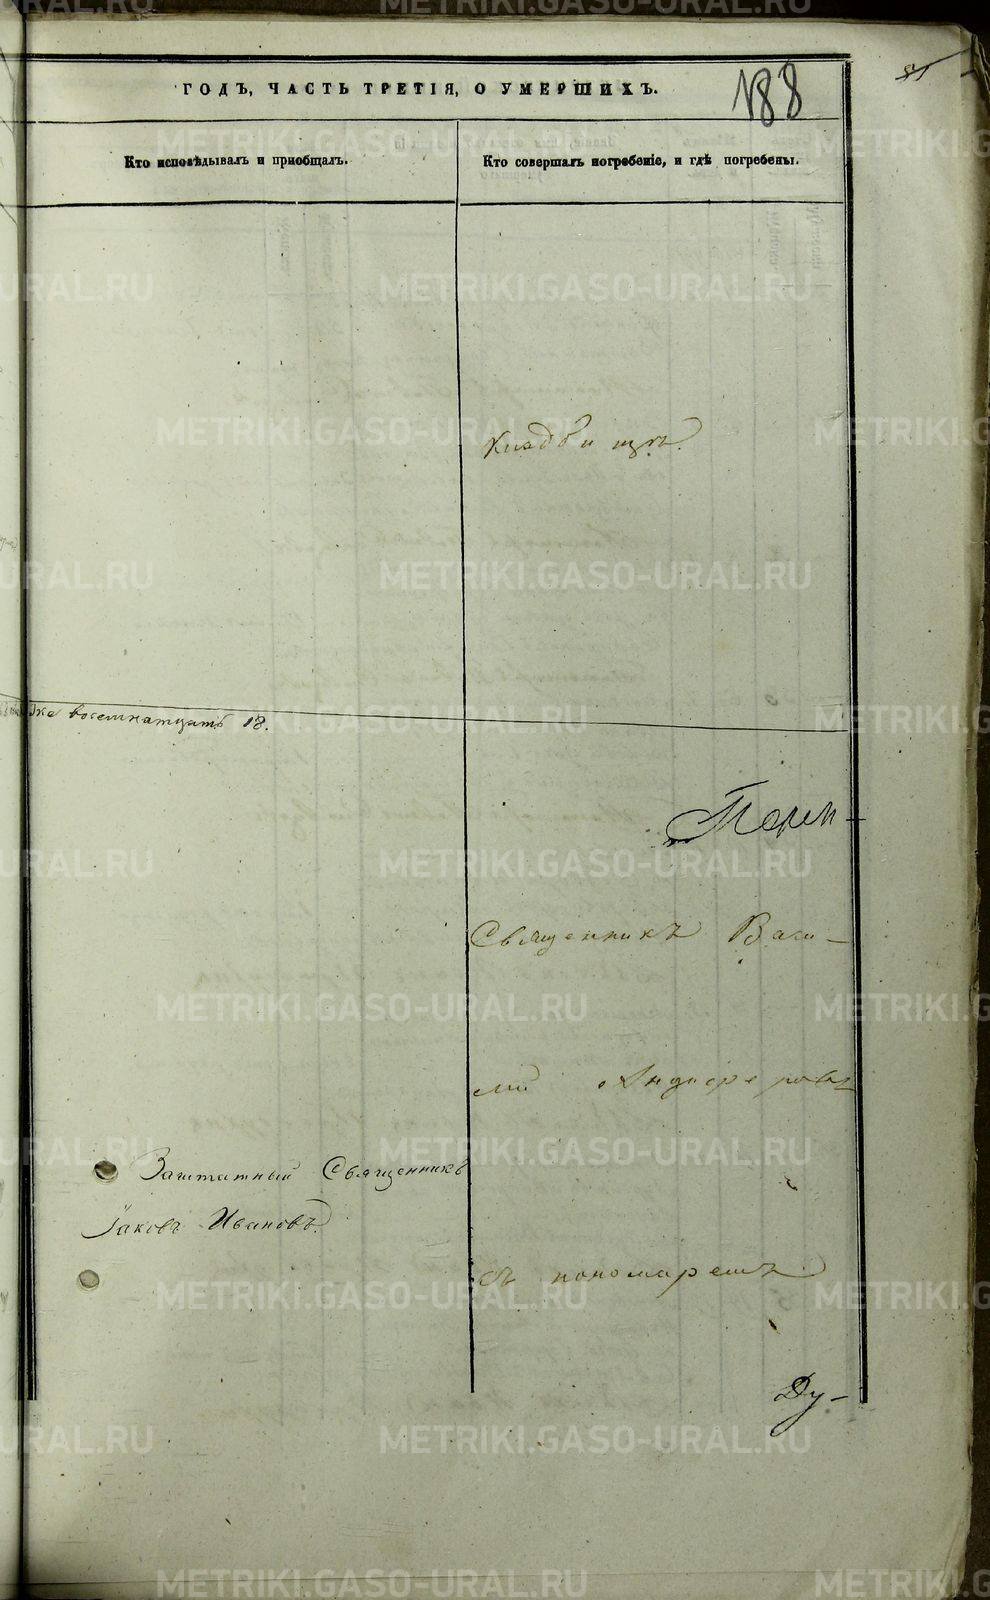 ГОДЪ, ЧАСТЬ ТРЕТІЯ, О УМЕРШИХЪ.
188
Кто исповѣдывалъ и пріобщалъ.
Кто совершалъ погребеніе, и гдѣ погребены.
кладбищѣ.
же восемнатцать 18.
Священникъ Васи-
лій
Заштатный Священникъ
Іаковъ Ивановъ.
съ пономаремъ
Ду-
METRIKI.GASO-URAL.RU